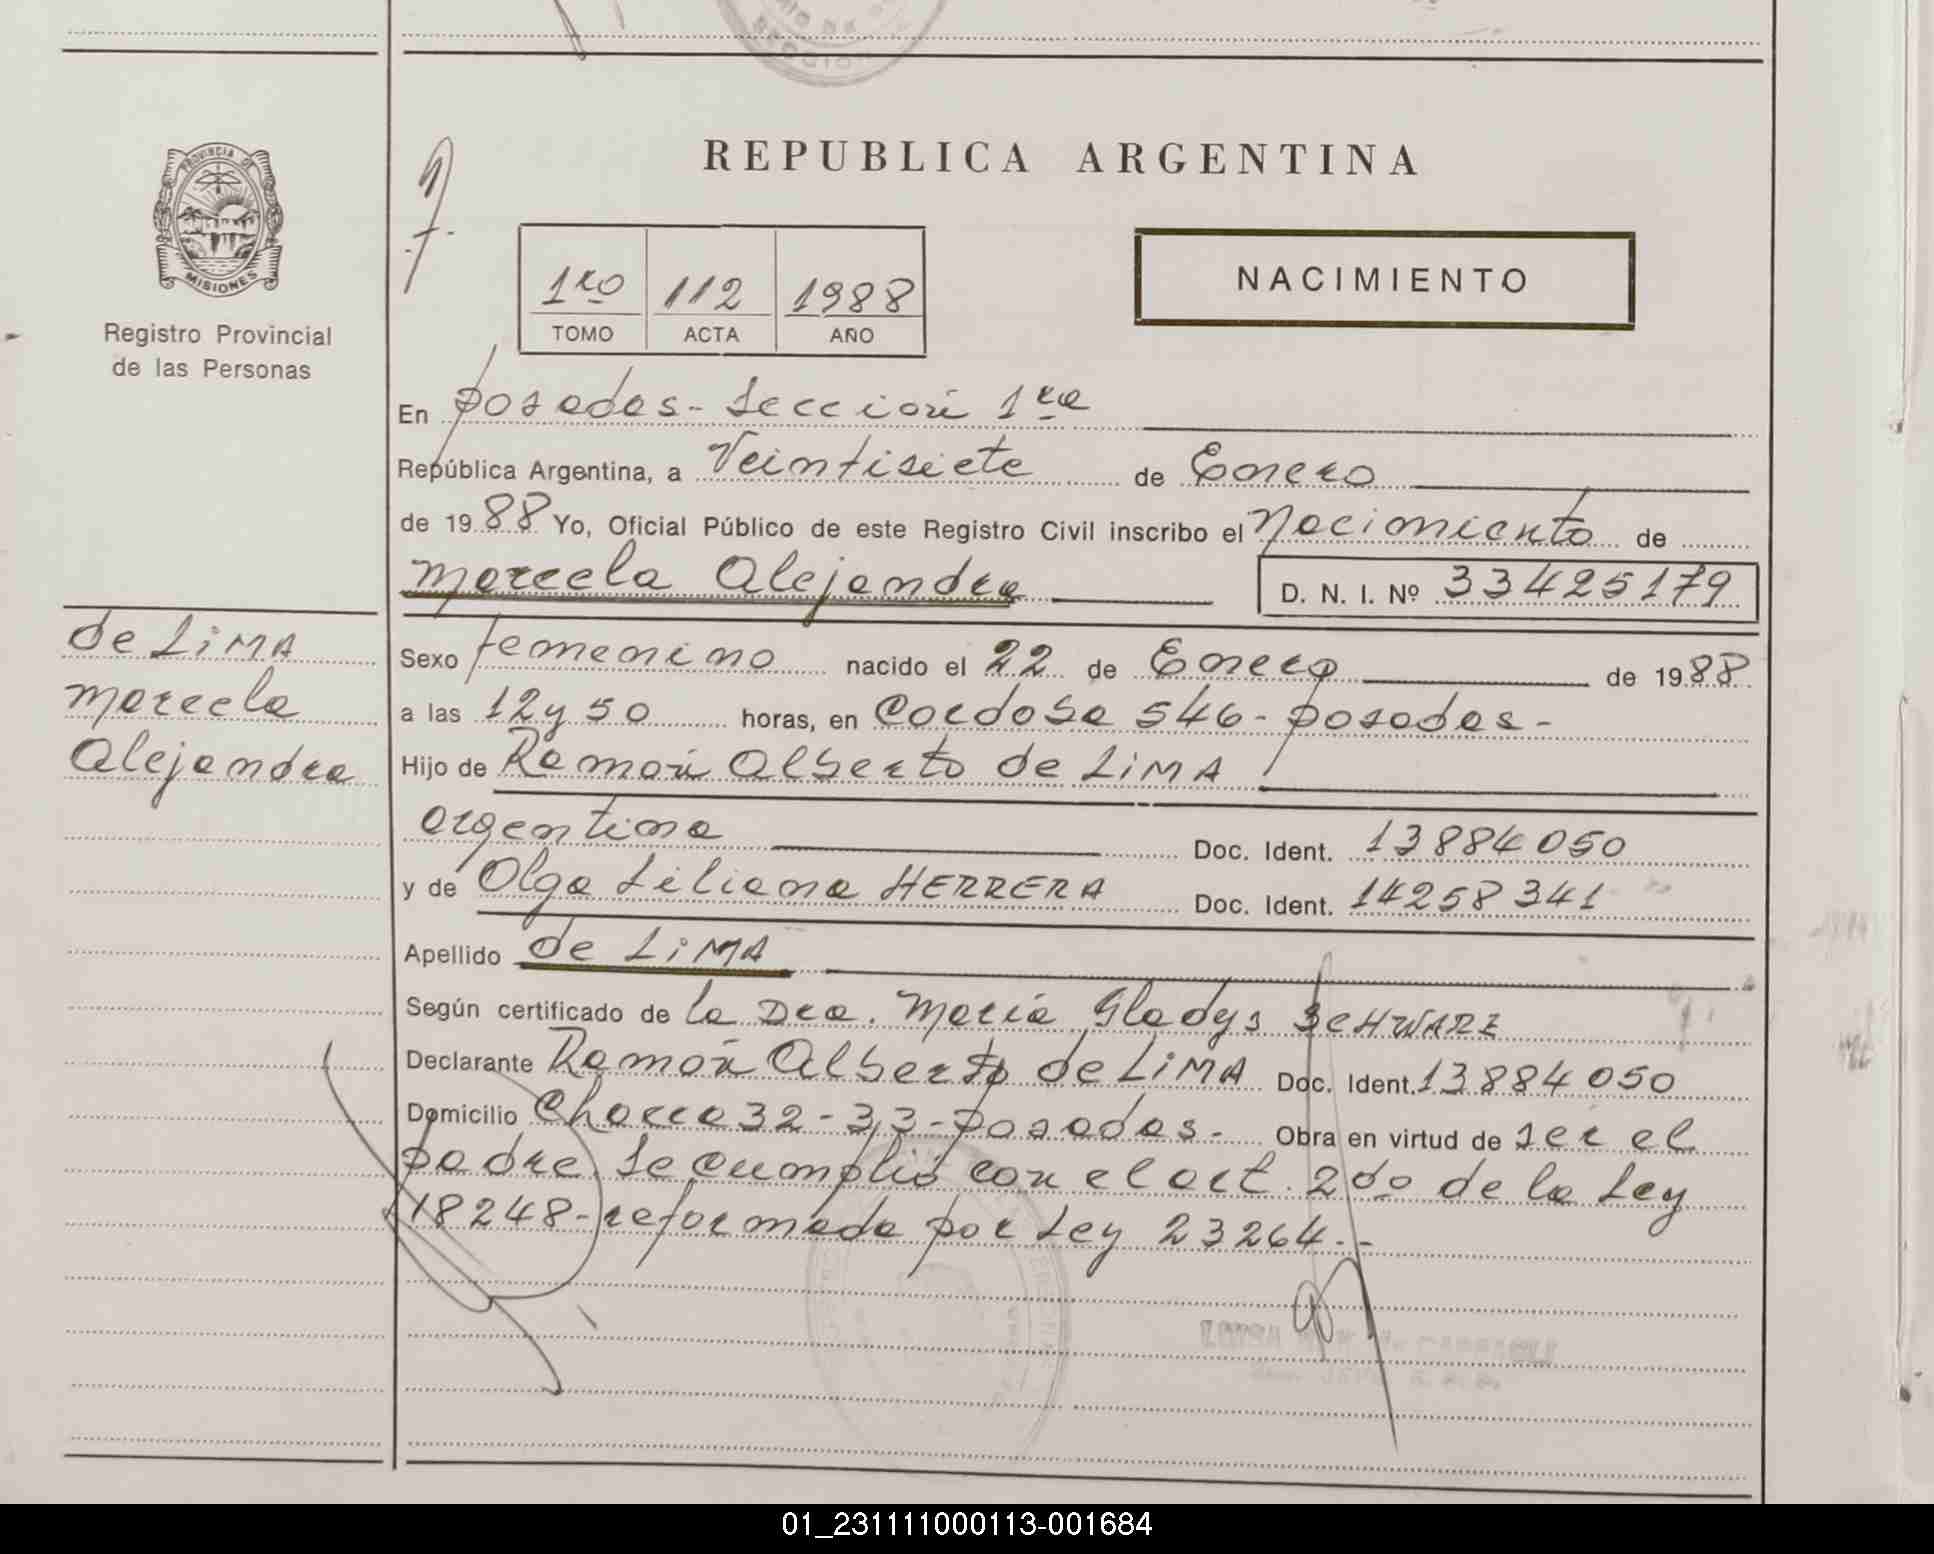 REPUBLICA ARGENTINA
PROVINCIA DE
MISIONES
Registro Provincial
de las Personas
1ro 112 1988
TOMO ACTA AÑO
NACIMIENTO
En posadas - Sección 1ra
República Argentina, a Veintisiete de Enero
de 1988 Yo, Oficial Público de este Registro Civil inscribo el Nacimiento de
Marcela Alejandra D. N. I. Nº 33425179
de LiMA
Marcela
Alejandra
Sexo femenino nacido el 22 de Enero de 1988
a las 12 y 50 horas, en Cordoba 546 - posadas -
Hijo de Ramón Alberto de LiMA
argentina Doc. Ident. 13884050
y de Olga Liliana HERRERA Doc. Ident. 14258341
Apellido de LiMA
Según certificado de la Dra. María Gladys SCHWARZ
Declarante Ramón Alberto de LiMA Doc. Ident. 13884050
Domicilio Chacra 32-33- posadas. Obra en virtud de ser el
padre. Se cumplió con el art. 2do de la Ley
18248 - reformada por Ley 23264. -
01_231111000113-001684